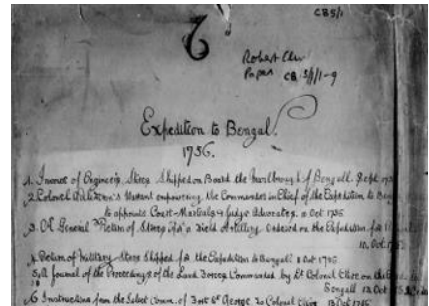 CB5/1
Robert Clive
Papers CB 5/1/1-9
Expedition to Bengal.
1756.
1. Invoice of Engineers Stores Shipped on Board the Marlbrough for Bengall. Sept 175
2. Colonel Warrant empowering the Commander in Chief of the Expedition to Beng
to appoint Court-Martials & Judge Advocates. 11 Oct 1756
3. A General Return of Stores for a Field Artillery Ordered on the Expedition for
10. Oct
4. Return of Military Stores Shipped for the Expedition to Bengall: Oct 1756
5. A Journal of the Proceedings of the Land Forces Commanded by Lt Colonel Clive on the
Bengall 13 Oct
6. Instruction from the Select Comm. of Fort St George to Colonel Clive. 13 Oct 1756